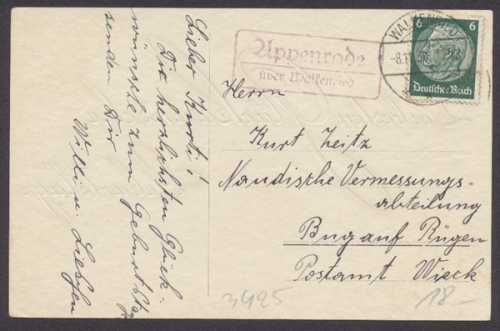 Lieber Kurti!
Die herzlichsten Glück-
wünsche zum Geburtstag
senden Dir
Willi u. Lieschen
Appenrode
über Walkenried
WALKENRIED
6 6
Deutsches Reich
Herrn
Kurt Zeitz
Nautische Vermessungs-
abteilung
Bug auf Rügen
Postamt Wieck
3425
18.-